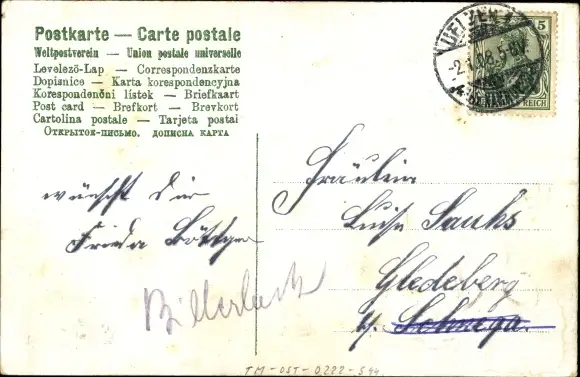 Postkarte — Carte postale
Weltpostverein — Union postale universelle
Levelezö-Lap — Correspondenzkarte
Dopisnice — Karta korespondencyjna
Korespondenčni listek — Briefkaart
Post card — Brefkort — Brevkort
Cartolina postale — Tarjeta postal
Открытое-письмо. дописна карта
wünscht Dir
Frieda Böttger
Fräulein
Luise
Gledeberg
b/ Schnega.
5
REICH
TM-OST-0222-544